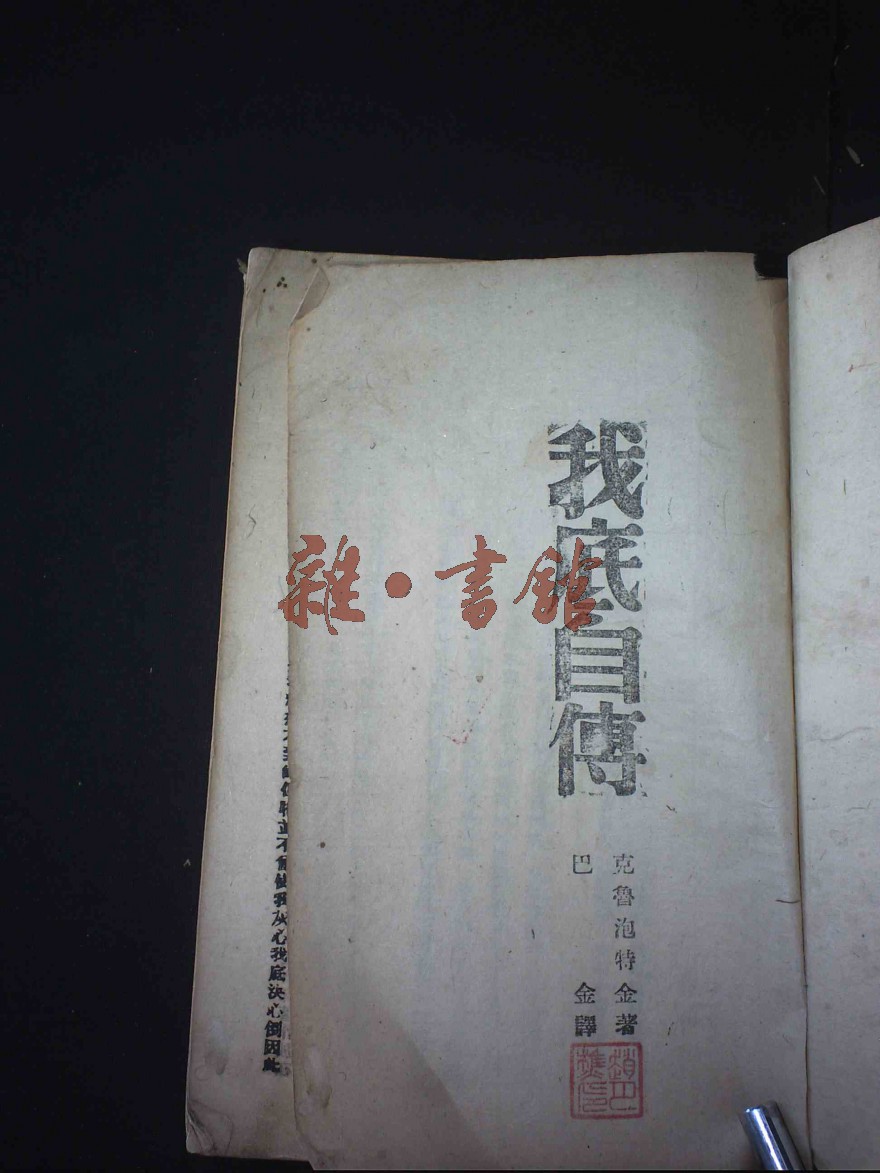 我底自傳
克魯泡特金著
巴金譯
雜·書館
不能使我灰心我底決心倒因此